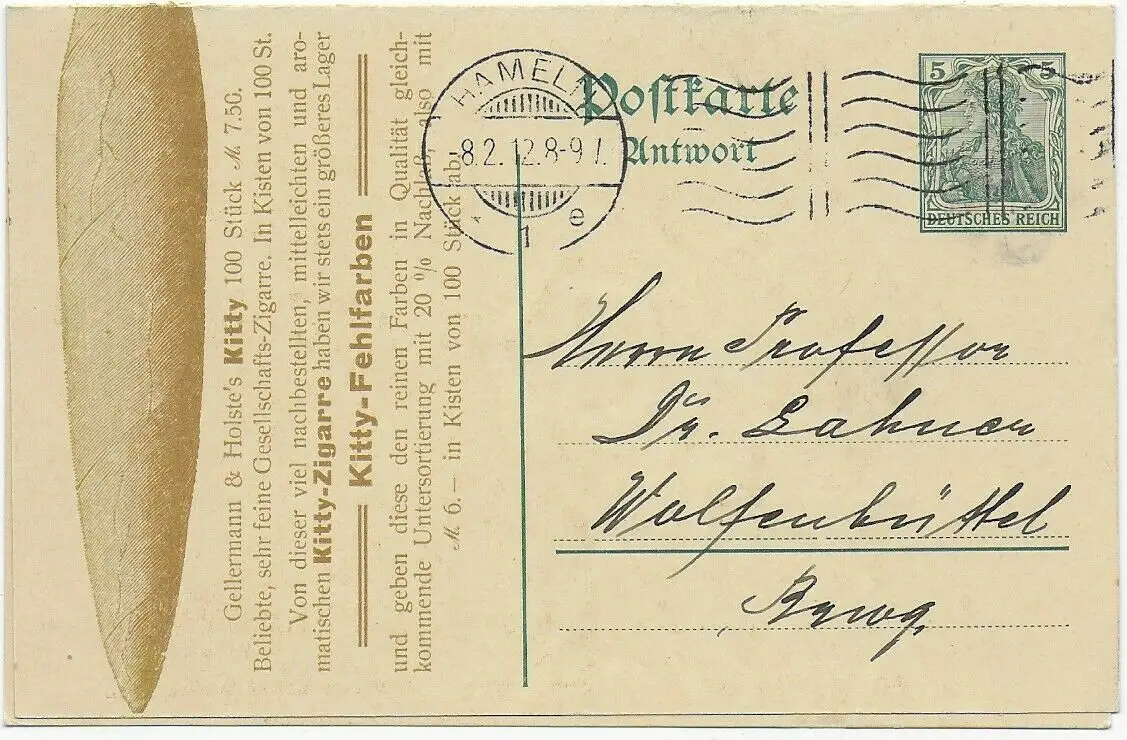 Gellermann & Holste's Kitty 100 Stück M. 7.50.
Beliebte, sehr feine Gesellschafts-Zigarre. In Kisten von 100 St.
Von dieser viel nachbestellten, mittelleichten und aro-
matischen Kitty-Zigarre haben wir stets ein größeres Lager
Kitty-Fehlfarben
und geben diese den reinen Farben in Qualität gleich-
kommende Untersortierung mit 20 % Nachlaß, also mit
M. 6.– in Kisten von 100 Stück ab.
HAMELN
-8.2.12.8-9 V.
* 1 e
Postkarte
Antwort
5 5
DEUTSCHES REICH
Herrn Professor
Dr. Lahner
Wolfenbüttel